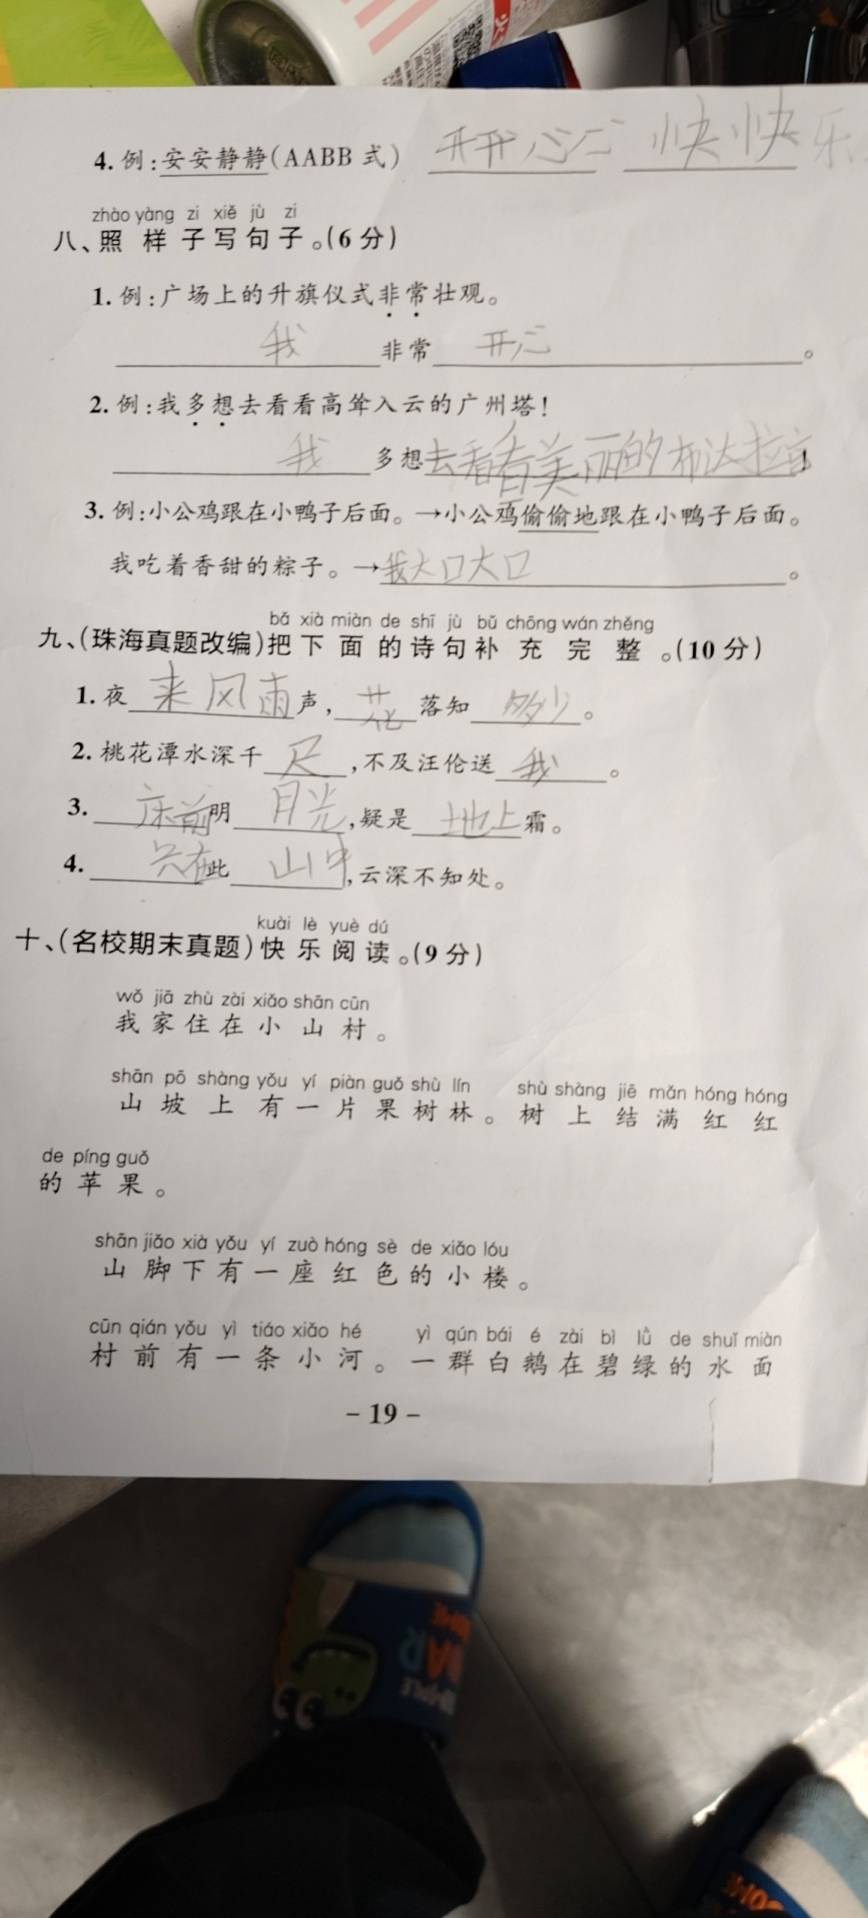 4. 例:安安静静(AABB 式) 开开心心 快快乐
zhào yàng zi xiě jù zi
八、照样子写句子。(6分)
1. 例:广场上的升旗仪式非常壮观。
我非常开心。
2. 例:我多想去看看高耸入云的广州塔!
我多想去看看美丽的布达拉宫!
3. 例:小公鸡跟在小鸭子后面。→小公鸡偷偷地跟在小鸭子后面。
我吃着香甜的粽子。→我大口大口。
bǎ xià miàn de shī jù bǔ chōng wán zhěng
九、(珠海真题改编)把下面的诗句补充完整。(10分)
1. 夜来风雨声,花落知多少。
2. 桃花潭水深千尺,不及汪伦送我。
3. 床前明月光,疑是地上霜。
4. 只在此山中,云深不知处。
kuài lè yuè dú
十、(名校期末真题)快乐阅读。(9分)
wǒ jiā zhù zài xiǎo shān cūn
我家住在小山村。
shān pō shàng yǒu yí piàn guǒ shù lín shù shàng jiē mǎn hóng hóng
山坡上有一片果树林。树上结满红红
de píng guǒ
的苹果。
shān jiǎo xià yǒu yí zuò hóng sè de xiǎo lóu
山脚下有一座红色的小楼。
cūn qián yǒu yì tiáo xiǎo hé yì qún bái é zài bì lǜ de shuǐ miàn
村前有一条小河。一群白鹅在碧绿的水面
- 19 -